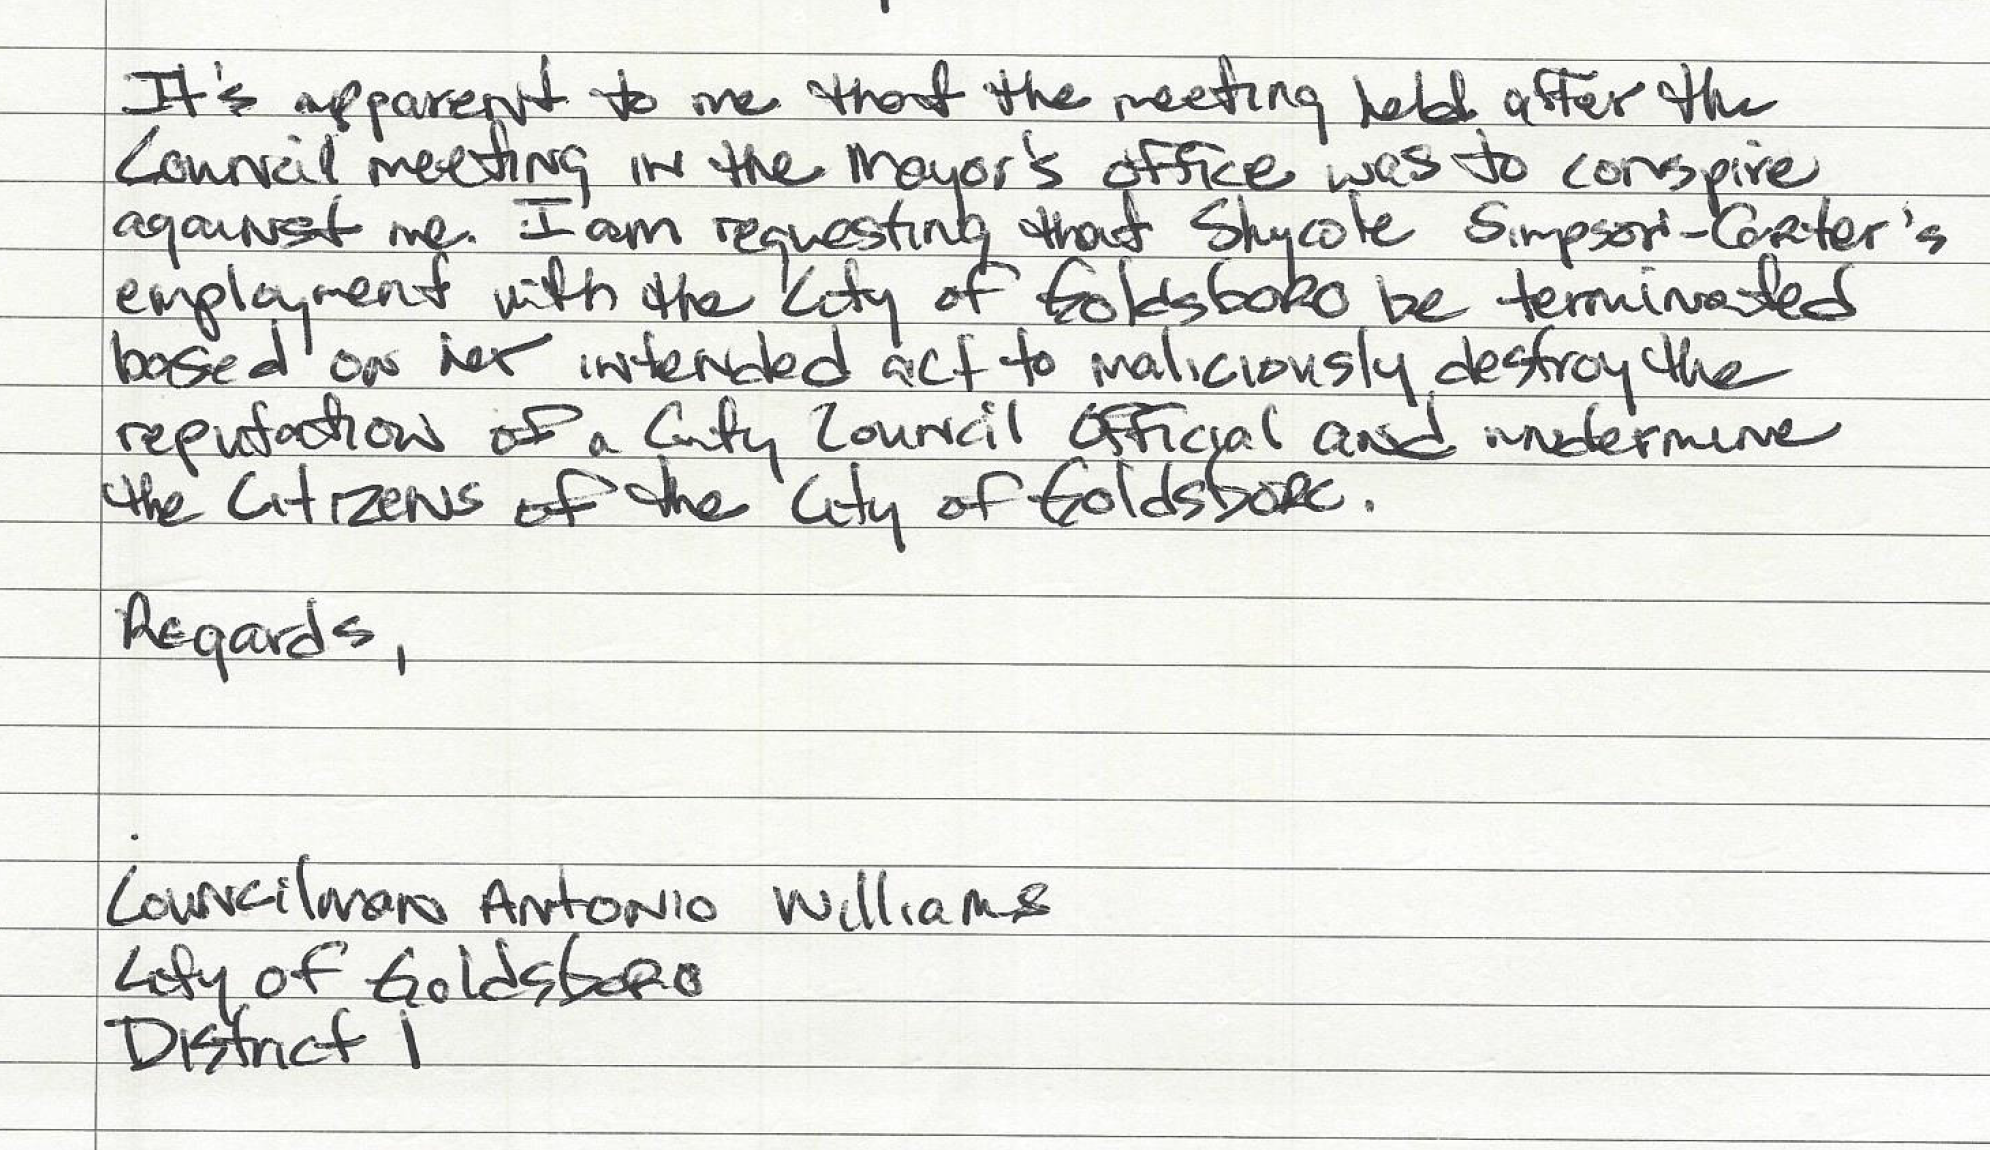 It's apparent to me that the meeting held after the
Council meeting in the Mayor's office was to conspire
against me. I am requesting that Shycole Simpson-Carter's
employment with the City of Goldsboro be terminated
based on her intended act to maliciously destroy the
reputation of a City Council Official and undermine
the Citizens of the City of Goldsboro.
Regards,
Councilman Antonio Williams
City of Goldsboro
District 1